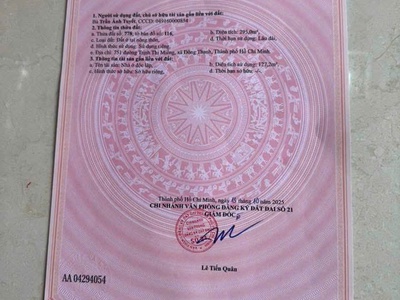 1. Người sử dụng đất, chủ sở hữu tài sản gắn liền với đất:
Bà Trần Ánh Tuyết, CCCD:
2. Thông tin thửa đất:
a. Thửa đất số: 778, tờ bản đồ số: 114. b. Diện tích: 295,0m²
c. Loại đất: Đất ở tại nông thôn. d. Thời hạn sử dụng: Lâu dài.
đ. Hình thức sử dụng: Sử dụng riêng.
e. Địa chỉ: 351 đường Trịnh Thị Miếng, xã Đông Thạnh, Thành phố Hồ Chí Minh.
3. Thông tin tài sản gắn liền với đất:
a. Tên tài sản: Nhà ở độc lập. b. Diện tích sử dụng: 177,2m².
c. Hình thức sở hữu: Sở hữu riêng. d. Thời hạn sở hữu: -/-.
Thành phố Hồ Chí Minh, ngày tháng 10 năm 2025
CHI NHÁNH VĂN PHÒNG ĐĂNG KÝ ĐẤT ĐAI SỐ 21
GIÁM ĐỐC
Lê Tiến Quân
AA 04294054